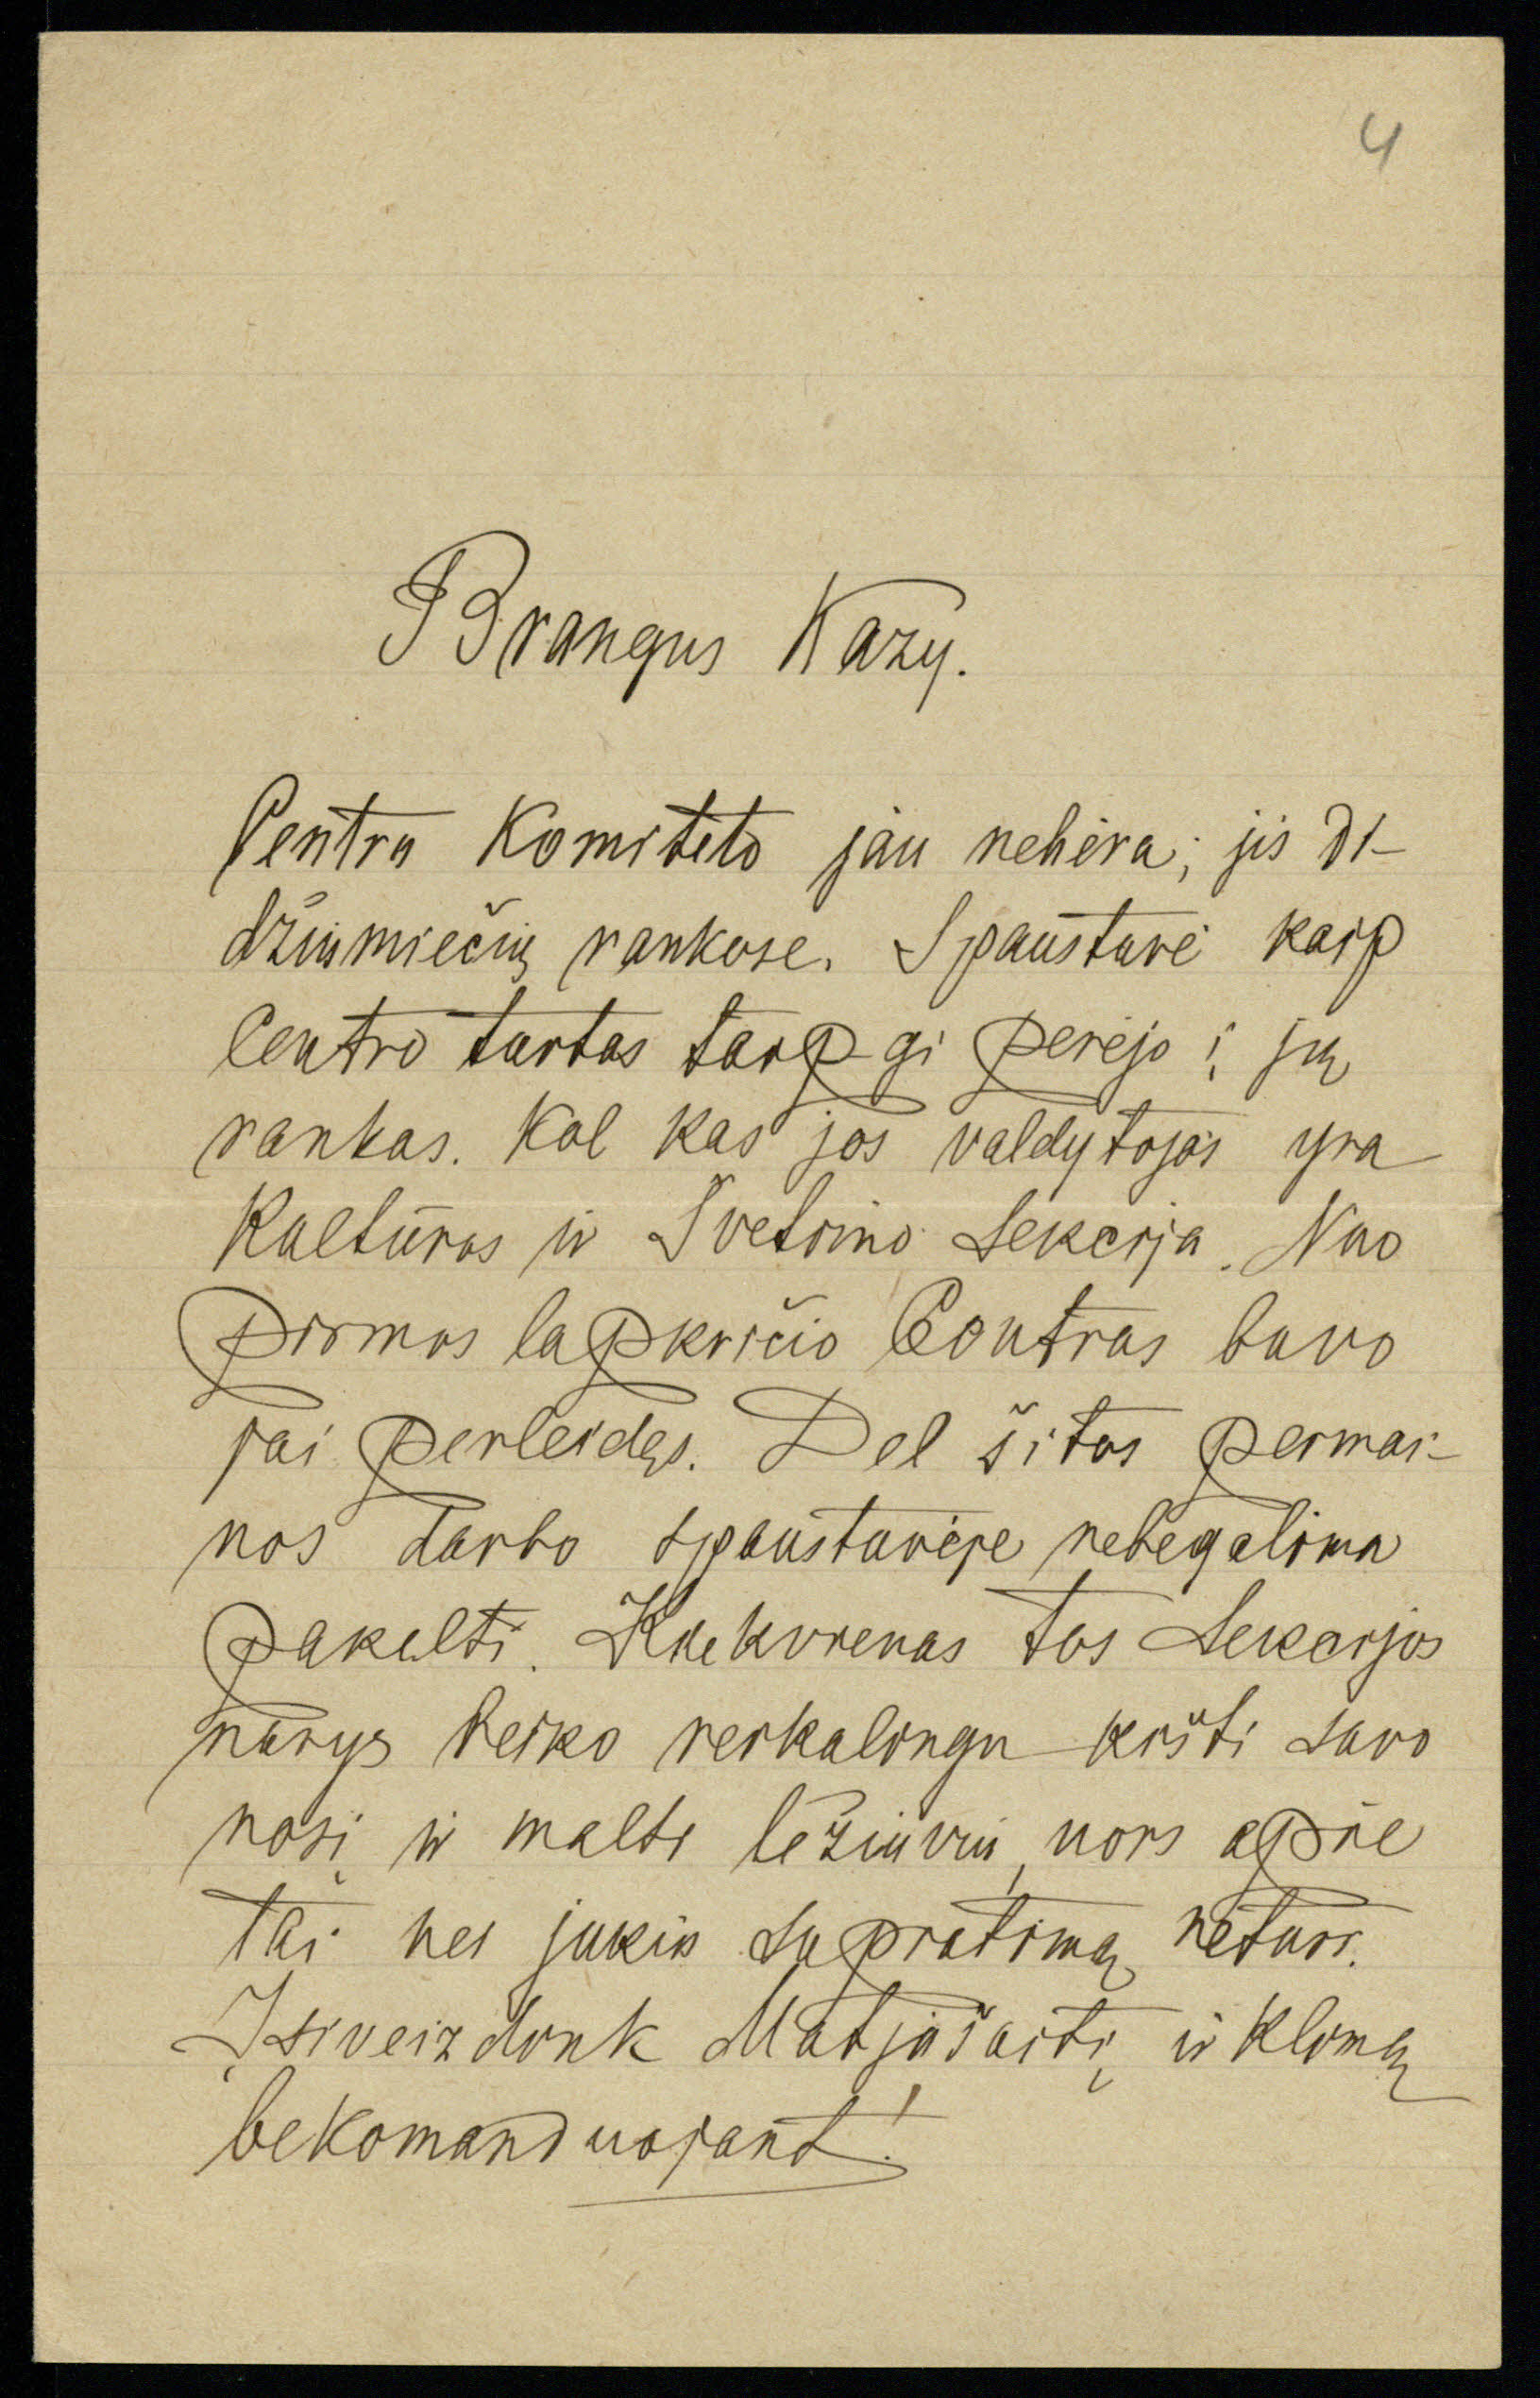 4
Brangus Kazy.
Centro Komiteto jau nebėra; jis di-
džiumiečių rankose. Spaustuvė kaip
Centro turtas taip-gi perėjo į jų
rankas. Kol kas jos valdytojas yra
Kultūros ir Švetimo Sekcija. Nuo
pirmos lapkričio Centras buvo
jai perleidęs. Del šitos permai-
nos darbo spaustuvėje nebegalima
pakelti. Kiekvienas tos Sekcijos
narys leiko reikalingu kišti savo
nosį ir malti ležiuviu, nors apie
tai nei jukio supratimą neturi.
Įsiveizdink Matjošaitį ir Klimą
bekomanduojant!